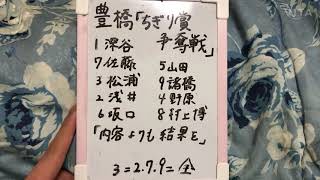 豊橋「ちぎり賞
争奪戦」
1深谷
7佐藤 5山田
3松浦 9諸橋
2浅井 4野原
6坂口 8村上博
「内容よりも結果を」
3=2.7.9=全